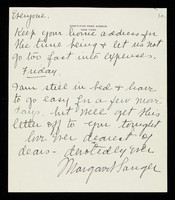 Everyone.
Keep your home address for
the time being & let us not
go too fast into expenses.
Friday.
I am still in bed & have
to go easy for a few more
days, but will get this
letter off to you tonight
love ever dearest of
dears - devotedly ever
Margaret Sanger